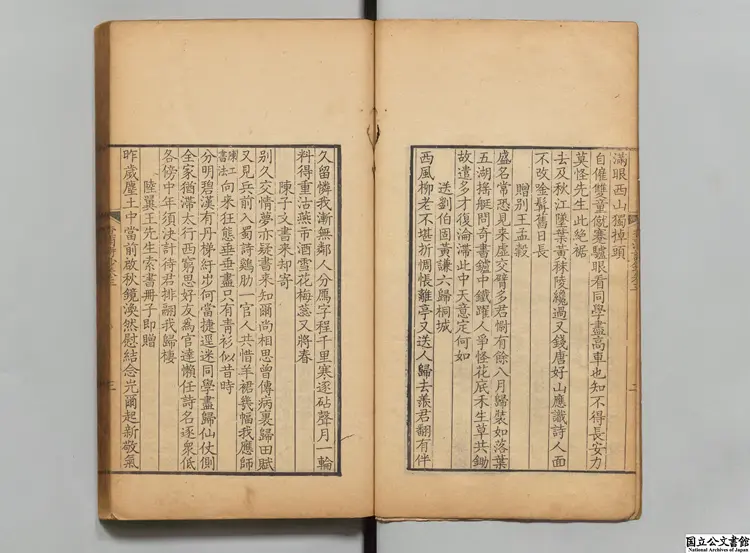 滿眼西山獨掉頭
自催雙童僦蹇驢眼看同學盡高車也知不得長安力
莫怪先生此絕裾
去及秋江墜葉黃秣陵纔過又錢唐好山應讖詩人面
不改塗髹舊日長
贈別王孟穀
盛名常恐見來虛交臂多君惻有餘八月歸裝如落葉
五湖搖艇問奇書鑪中鐵躍人爭怪花底禾生草共鋤
故遣多才復淪滯此中天意定何如
送劉伯固黃謙六歸桐城
西風柳老不堪折惆悵離亭又送人歸去羨君翻有伴
二
久留憐我漸無鄰人分鴈字程千里寒逐砧聲月一輪
料得重沽燕市酒雪花梅蘂又將春
陳子文書來却寄
別久交情夢亦疑書來知爾尚相思曾傳病裏歸田賦
又見兵前入蜀詩鷄肋一官人共惜羊裙幾幅我應師
陳工書法向來狂態垂垂盡只有青衫似昔時
分明碧漢有丹梯紆步何當捷逕迷同學盡歸仙仗側
全家猶滯太行西窮思好友為官達懶任詩名逐衆低
各傍中年須決計待君排翮我歸棲
陸翼王先生索書冊子即贈
昨歲塵土中當前啟秋鏡渙然慰結念光爾起新敬氣
三
国立公文書館
National Archives of Japan